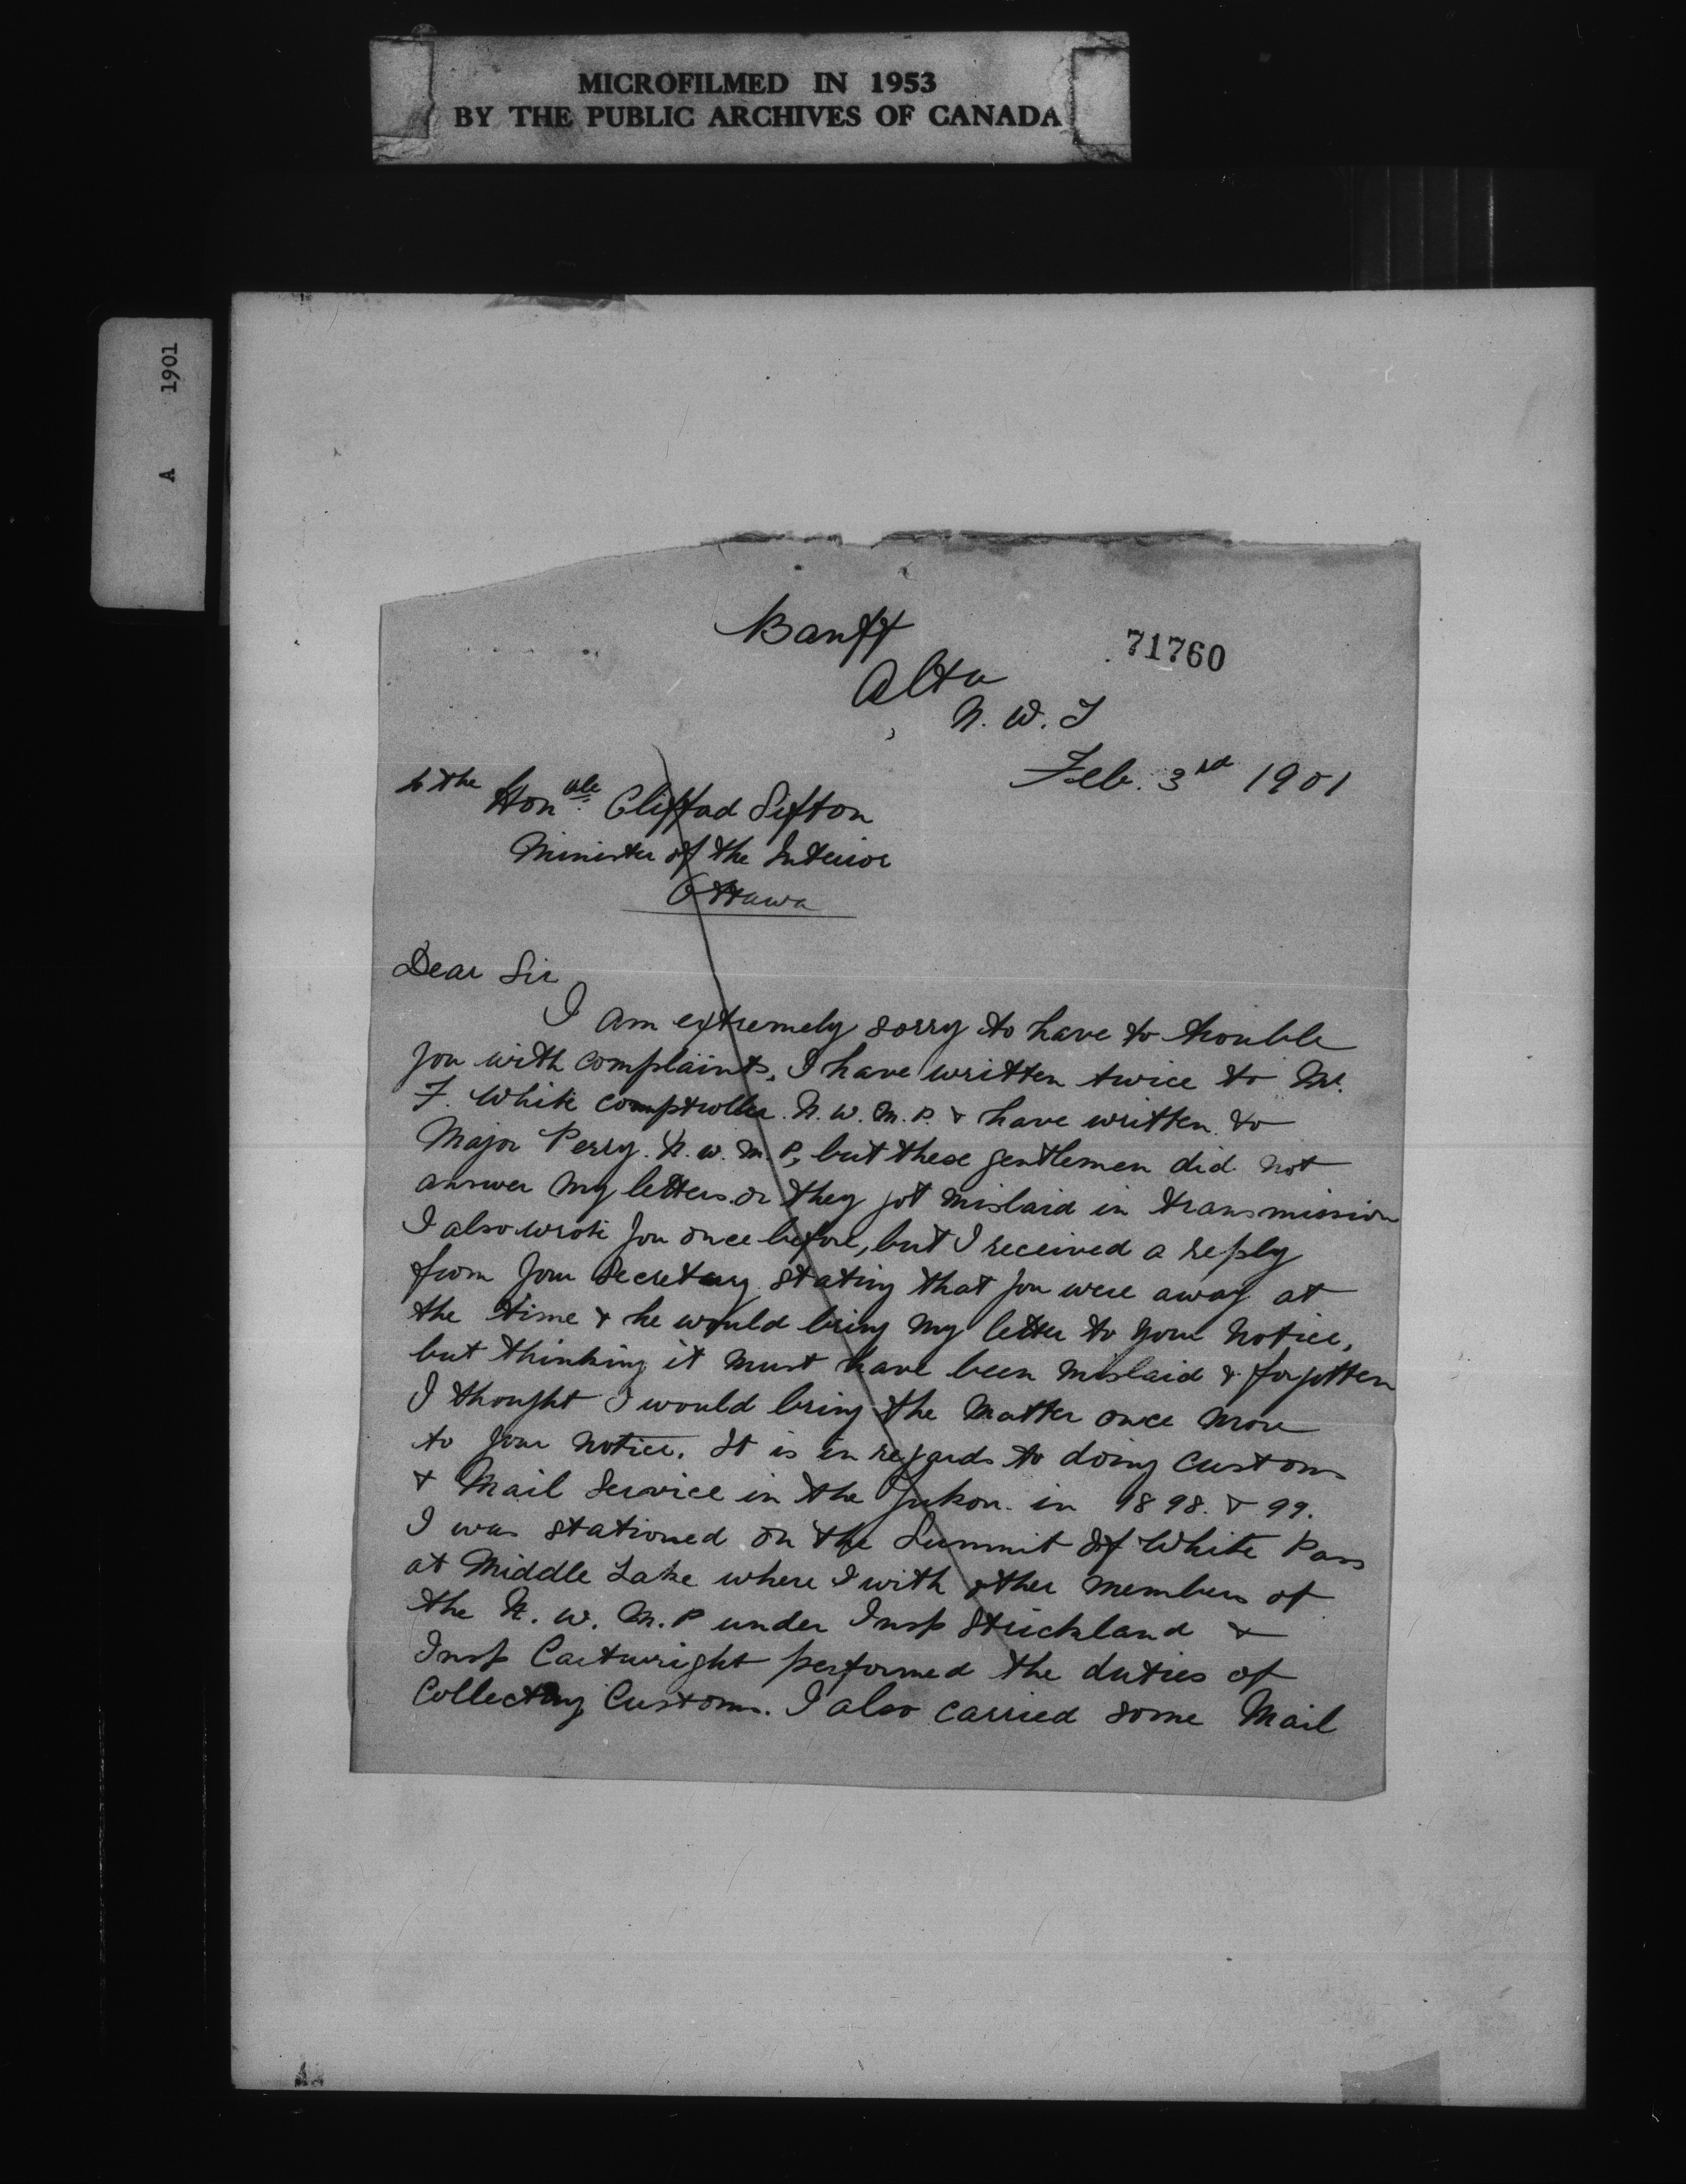 MICROFILMED IN 1953
BY THE PUBLIC ARCHIVES OF CANADA
A 1901
Banff
71760
Alta
N. W. T
Feb. 3rd 1901
To the Honble Cliffad Sifton
Minister of the Interior
Ottawa
Dear Sir
I am extremely sorry to have to trouble
you with complaints, I have written twice to Mr.
F. White comptroller. N. W. M. P. & have written to
Major Perry. N. W. M. P, but these gentlemen did not
answer my letters or they got mislaid in transmission
I also wrote you once before, but I received a reply
from your Secretary stating that you were away at
the time & he would bring my letter to your notice,
but thinking it must have been mislaid & forgotten
I thought I would bring the matter once more
to your notice. It is in regards to doing Customs
& Mail Service in the Yukon. in 1898. & 99.
I was stationed on the Summit of White Pass
at Middle Lake where I with other members of
the N. W. M. P under Insp Strickland &
Insp Cartwright performed the duties of
Collecting Customs. I also carried some Mail